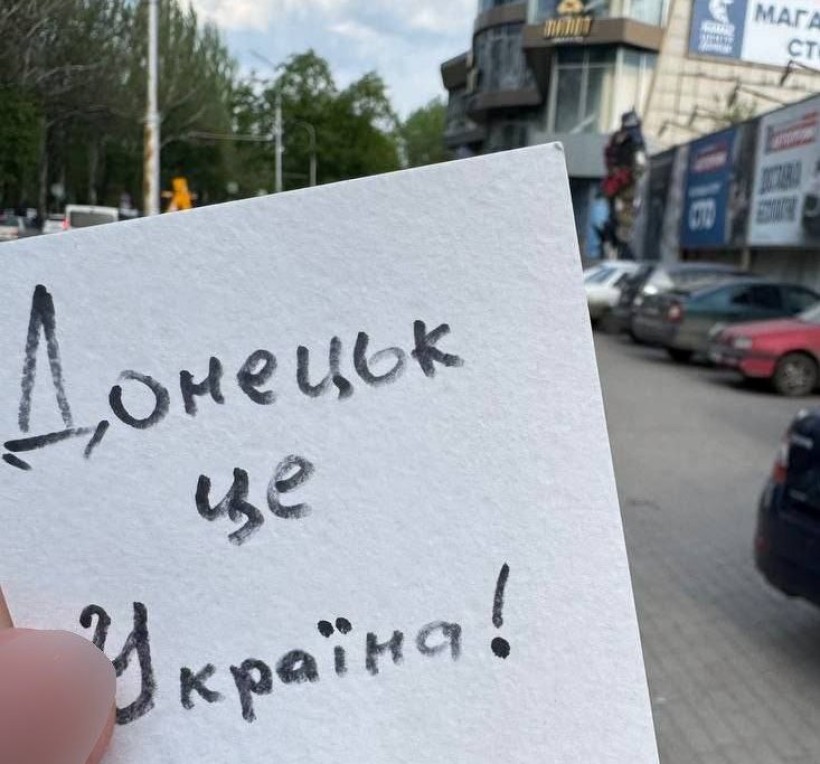 Донецьк
це
Україна!
МАГА
СТО
ДОСТАВКА